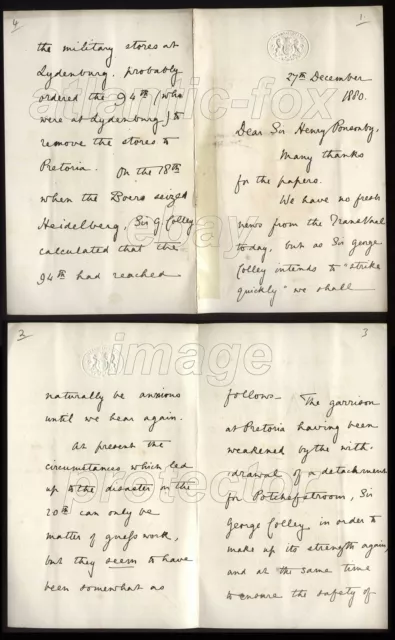 1.
27th December
1880.
Dear Sir Henry Ponsonby,
Many thanks
for the papers.
We have no fresh
news from the Transvaal
to day, but as Sir George
Colley intends to "strike
quickly" we shall
2
naturally be anxious
until we hear again.
At present the
circumstances which led
up to the disaster on the
20th can only be
matter of guess work,
but they seem to have
been somewhat as
3
follows— The garrison
at Pretoria having been
weakened by the with-
drawal of a detachment
for Potchefstroom, Sir
George Colley, in order to
make up its strength again,
and at the same time
to ensure the safety of
4
the military stores at
Lydenburg, probably
ordered the 94th (who
were at Lydenburg) to
remove the stores to
Pretoria. On the 18th
when the Boers seized
Heidelberg, Sir G. Colley
calculated that the
94th had reached
atlantic-fox
ebay
image
protector